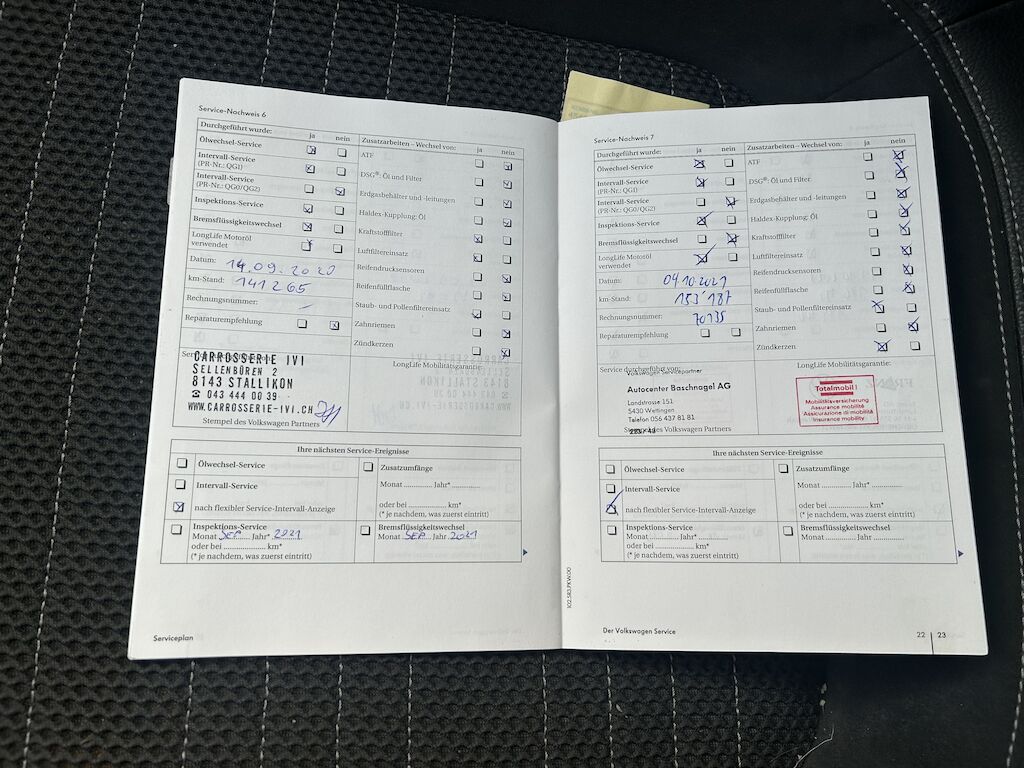 Service-Nachweis 6
Durchgeführt wurde: ja nein
Ölwechsel-Service
Intervall-Service
(PR-Nr.: QG1)
Intervall-Service
(PR-Nr.: QG0/QG2)
Inspektions-Service
Bremsflüssigkeitswechsel
LongLife Motoröl
verwendet
Datum: 14.09.2020
km-Stand: 141265
Rechnungsnummer:
Reparaturempfehlung
Zusatzarbeiten – Wechsel von: ja nein
ATF
DSG®: Öl und Filter
Erdgasbehälter und -leitungen
Haldex-Kupplung: Öl
Kraftstofffilter
Luftfiltereinsatz
Reifendrucksensoren
Reifenfüllflasche
Staub- und Pollenfiltereinsatz
Zahnriemen
Zündkerzen
CARROSSERIE IVI
SELLENBÜREN 2
8143 STALLIKON
☎ 043 444 00 39
WWW.CARROSSERIE-IVI.CH
Stempel des Volkswagen Partners
LongLife Mobilitätsgarantie:
Ihre nächsten Service-Ereignisse
Ölwechsel-Service
Intervall-Service
nach flexibler Service-Intervall-Anzeige
Inspektions-Service
Monat SEP Jahr* 2021
oder bei .................. km*
(* je nachdem, was zuerst eintritt)
Zusatzumfänge
Monat .............. Jahr* ............
oder bei .................. km*
(* je nachdem, was zuerst eintritt)
Bremsflüssigkeitswechsel
Monat SEP Jahr 2021
Serviceplan
Service-Nachweis 7
Durchgeführt wurde: ja nein
Ölwechsel-Service
Intervall-Service
(PR-Nr.: QG1)
Intervall-Service
(PR-Nr.: QG0/QG2)
Inspektions-Service
Bremsflüssigkeitswechsel
LongLife Motoröl
verwendet
Datum: 04.10.2021
km-Stand: 153'187
Rechnungsnummer: 70135
Reparaturempfehlung
Zusatzarbeiten – Wechsel von: ja nein
ATF
DSG®: Öl und Filter
Erdgasbehälter und -leitungen
Haldex-Kupplung: Öl
Kraftstofffilter
Luftfiltereinsatz
Reifendrucksensoren
Reifenfüllflasche
Staub- und Pollenfiltereinsatz
Zahnriemen
Zündkerzen
Service durchgeführt von:
Volkswagen Servicepartner
Autocenter Baschnagel AG
Landstrasse 151
5430 Wettingen
Telefon 056 437 81 81
Stempel des Volkswagen Partners
LongLife Mobilitätsgarantie:
Totalmobil!
Mobilitätsversicherung
Assurance mobilité
Assicurazione di mobilità
Insurance mobility
Ihre nächsten Service-Ereignisse
Ölwechsel-Service
Intervall-Service
nach flexibler Service-Intervall-Anzeige
Inspektions-Service
Monat .............. Jahr* ............
oder bei .................. km*
(* je nachdem, was zuerst eintritt)
Zusatzumfänge
Monat .............. Jahr* ............
oder bei .................. km*
(* je nachdem, was zuerst eintritt)
Bremsflüssigkeitswechsel
Monat .............. Jahr ............
102.5R3.PKW.00
Der Volkswagen Service
22 | 23